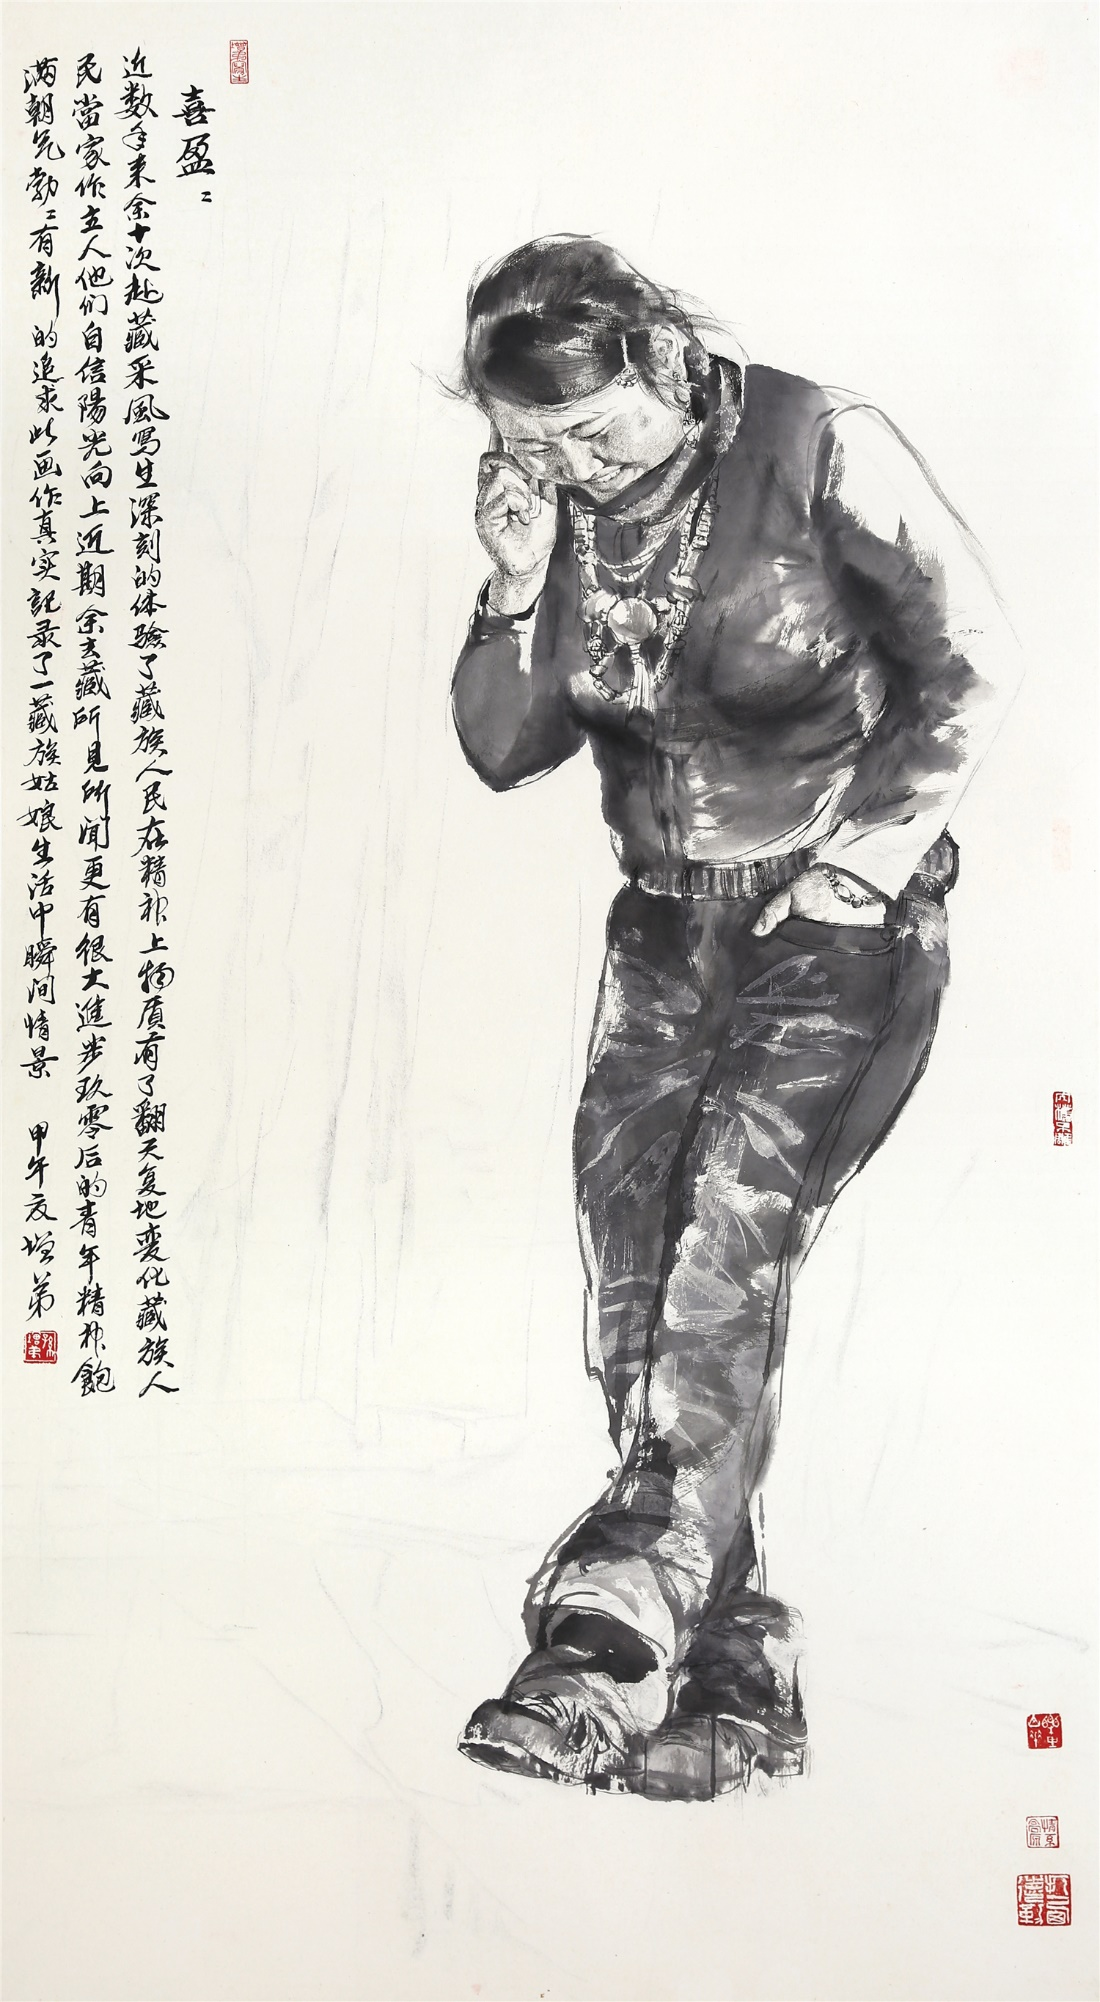 喜盈〻
近数年来余十次赴藏采風寫生深刻的体驗了藏族人民在精神上物质有了翻天复地變化藏族人
民當家作主人他们自信陽光向上近期余去藏所見所闻更有很大進步玖零后的青年精神飽
满朝气勃〻有新的追求此画作真实記录了一藏族姑娘生活中瞬间情景 甲午夏增弟